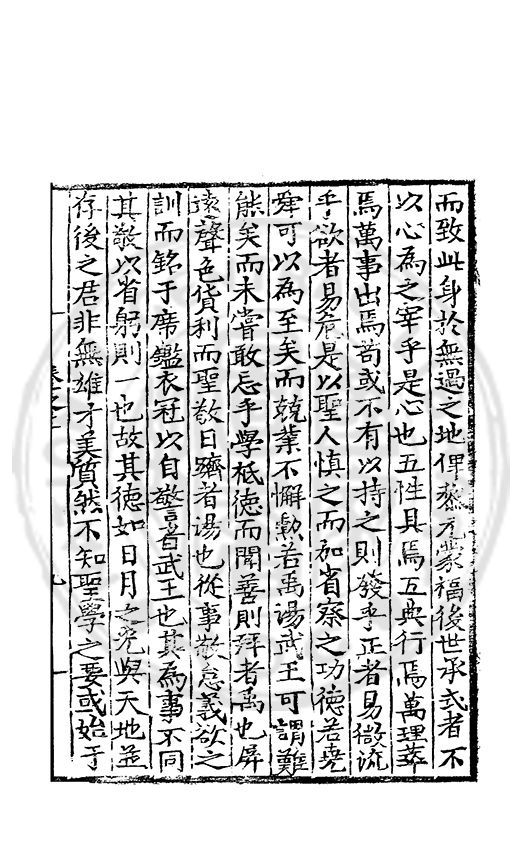 而致此身於無過之地俾蒸元蒙福後世承式者不
以心為之宰乎是心也五性具焉五典行焉萬理萃
焉萬事出焉苟或不有以持之則發乎正者易微流
乎欲者易危是以聖人慎之而加省察之功德若堯
舜可以為至矣而兢業不懈勳若禹湯武王可謂難
能矣而未嘗敢忘乎學祗德而聞善則拜者禹也屏
遠聲色貨利而聖敬日躋者湯也從事敬怠義欲之
訓而銘于席鑑衣冠以自警者武王也其為事不同
其敬以省躬則一也故其德如日月之光與天地並
存後之君非無雄才美質然不知聖學之要或始于